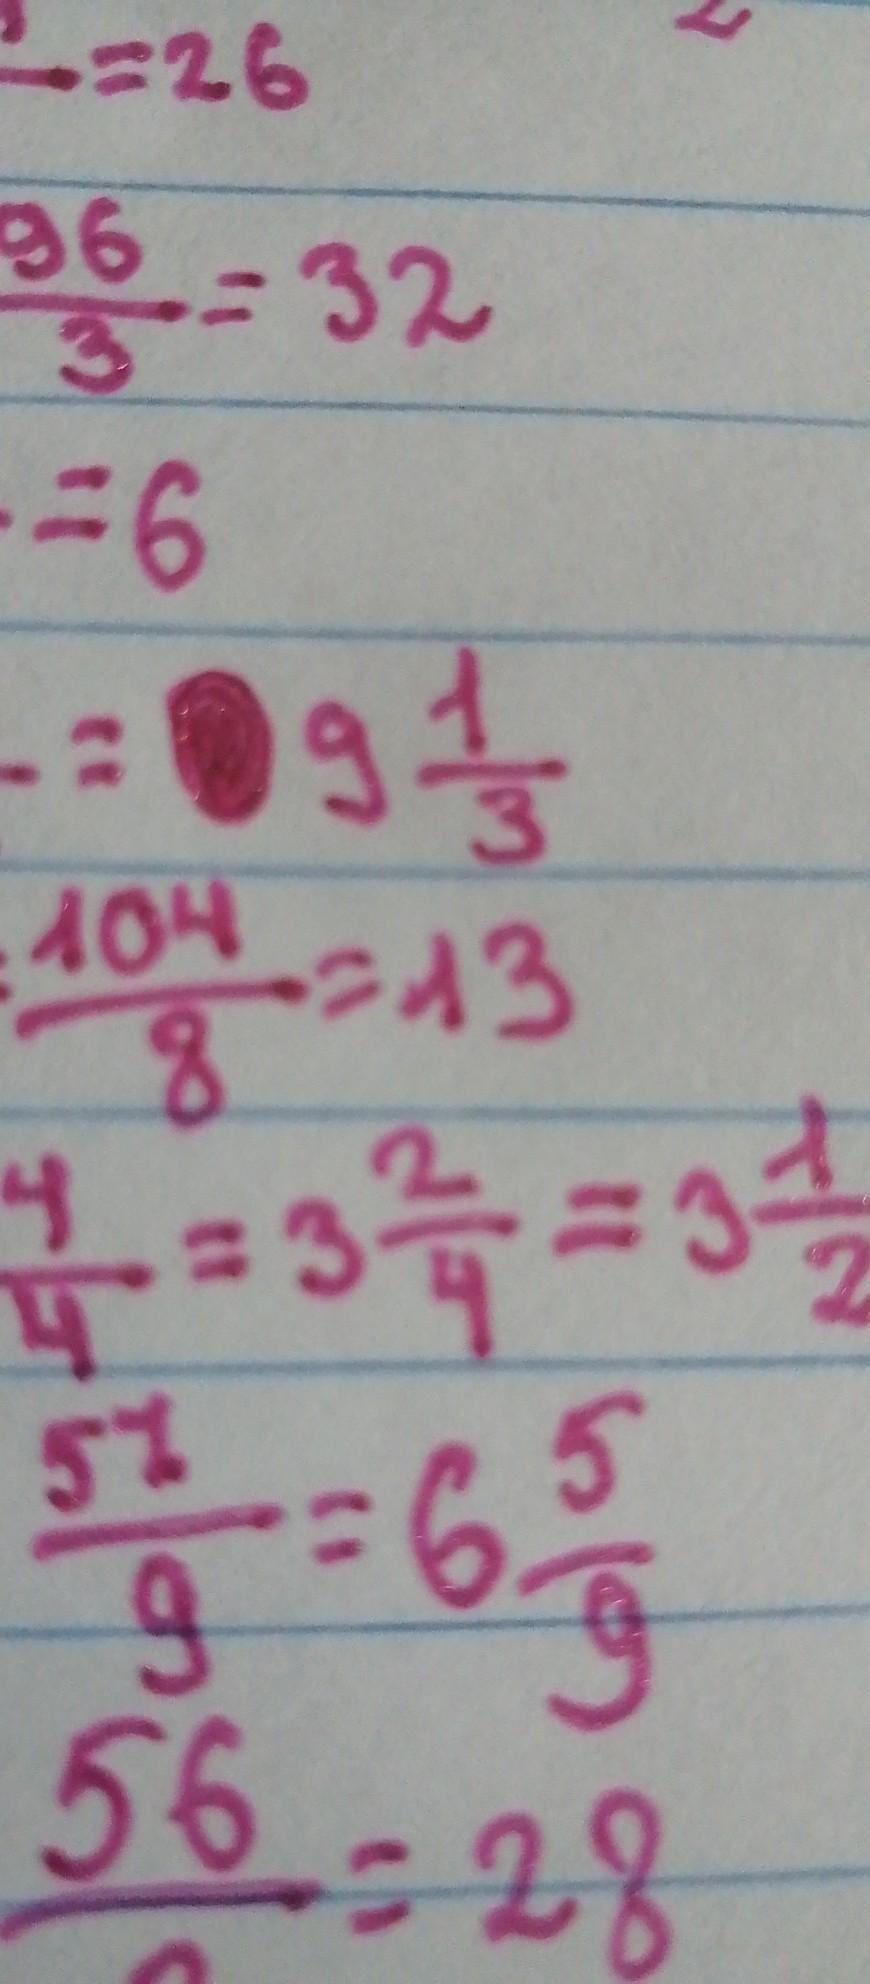 = 26
96/3 = 32
= 6
= 9 1/3
= 104/8 = 13
4/4 = 3 2/4 = 3 1/2
57/9 = 6 5/9
56/ = 28